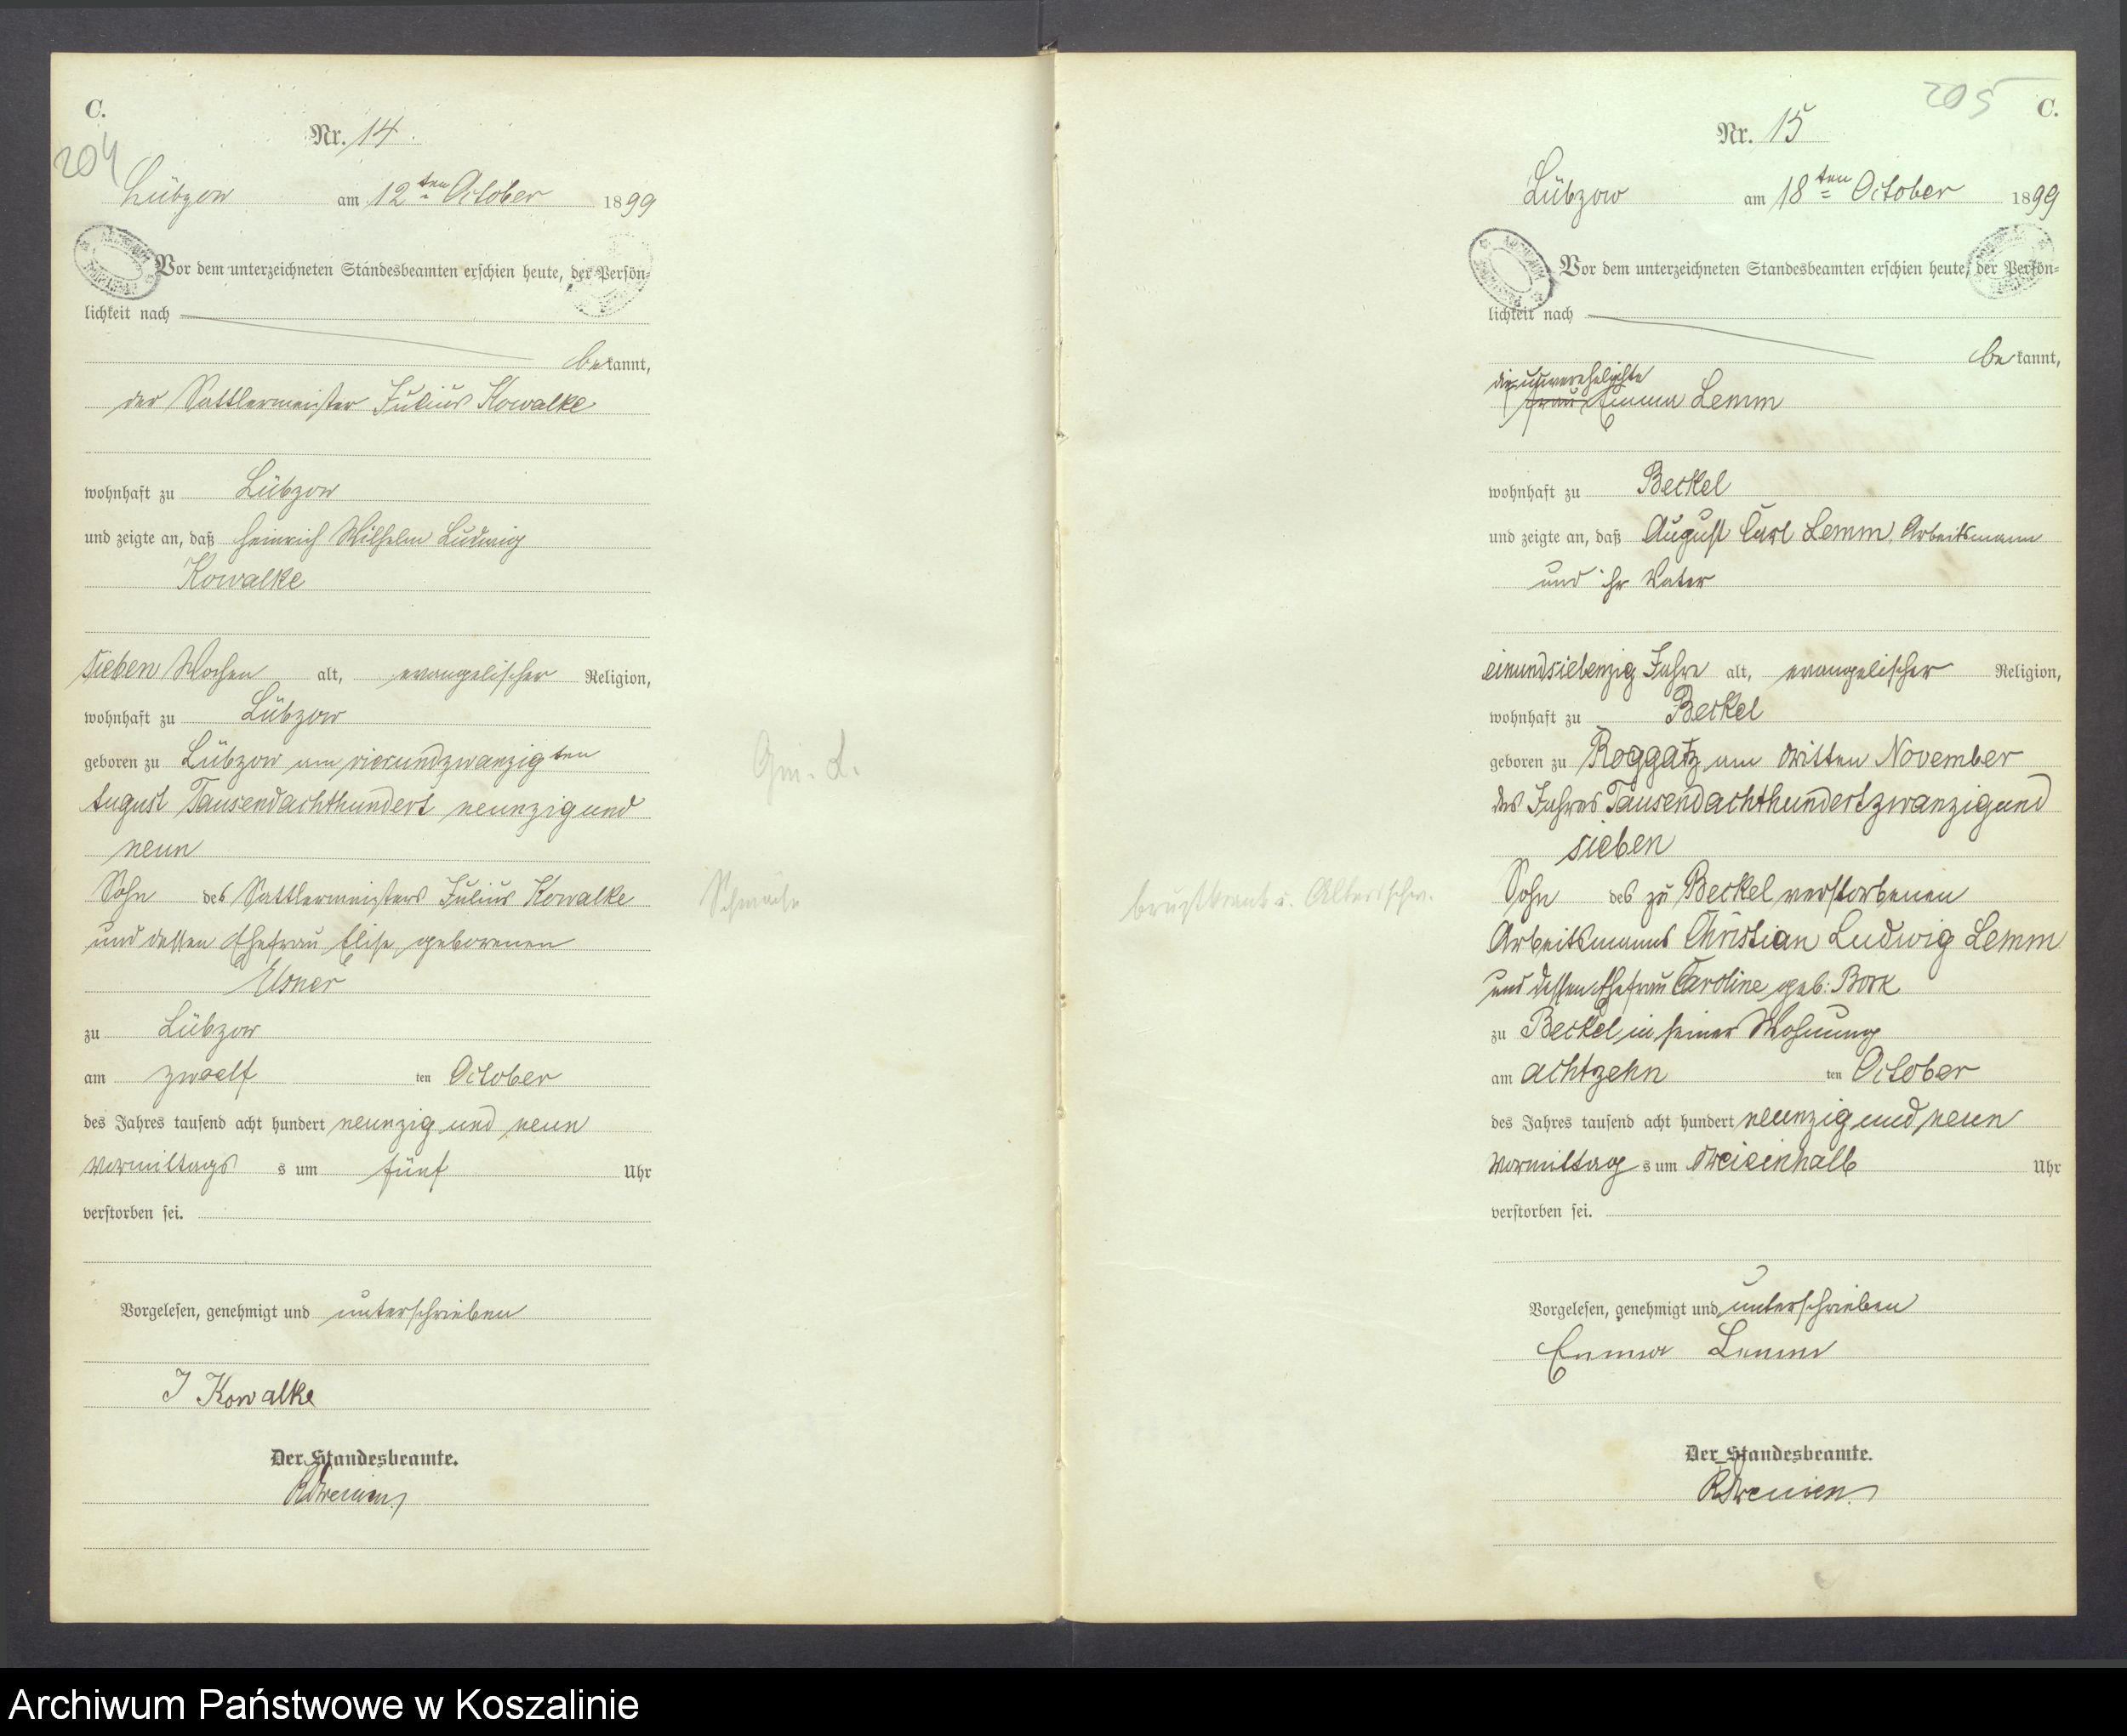 C.
204
Nr. 14
Lübzow am 12ten October 1899
Vor dem unterzeichneten Standesbeamten erschien heute, der Persön-
lichkeit nach
bekannt,
der Sattlermeister Julius Kowalke
wohnhaft zu Lübzow
und zeigte an, daß Heinrich Wilhelm Ludwig
Kowalke
sieben Wochen alt, evangelischer Religion,
wohnhaft zu Lübzow
geboren zu Lübzow am vierundzwanzigten
August Tausendachthundert neunzigund
neun
Sohn des Sattlermeisters Julius Kowalke
und dessen Ehefrau Elise, geborenen
Elsner
zu Lübzow
am zwoelf ten October
des Jahres tausend acht hundert neunzig und neun
Vormittags s um fünf Uhr
verstorben sei.
Vorgelesen, genehmigt und unterschrieben
J Kowalke
Der Standesbeamte.
Schwäche
205
C.
Nr. 15
Lübzow am 18ten October 1899
Vor dem unterzeichneten Standesbeamten erschien heute, der Persön-
lichkeit nach
bekannt,
die unverehelichte
Frau Emma Lemm
wohnhaft zu Beckel
und zeigte an, daß August Carl Lemm, Arbeitsmann
und ihr Vater
einundsiebenzig Jahre alt, evangelischer Religion,
wohnhaft zu Beckel
geboren zu Roggatz am dritten November
des Jahres Tausendachthundertzwanzigund
sieben
Sohn des zu Beckel verstorbenen
Arbeitsmanns Christian Ludwig Lemm
und dessen Ehefrau Caroline geb: Bork
zu Beckel in seiner Wohnung
am achtzehn ten October
des Jahres tausend acht hundert neunzig und neun
Vormittag s um dreieinhalb Uhr
verstorben sei.
Vorgelesen, genehmigt und unterschrieben
Emma Lemm
Der Standesbeamte.
brustkrank u. Altersschw.
Archiwum Państwowe w Koszalinie